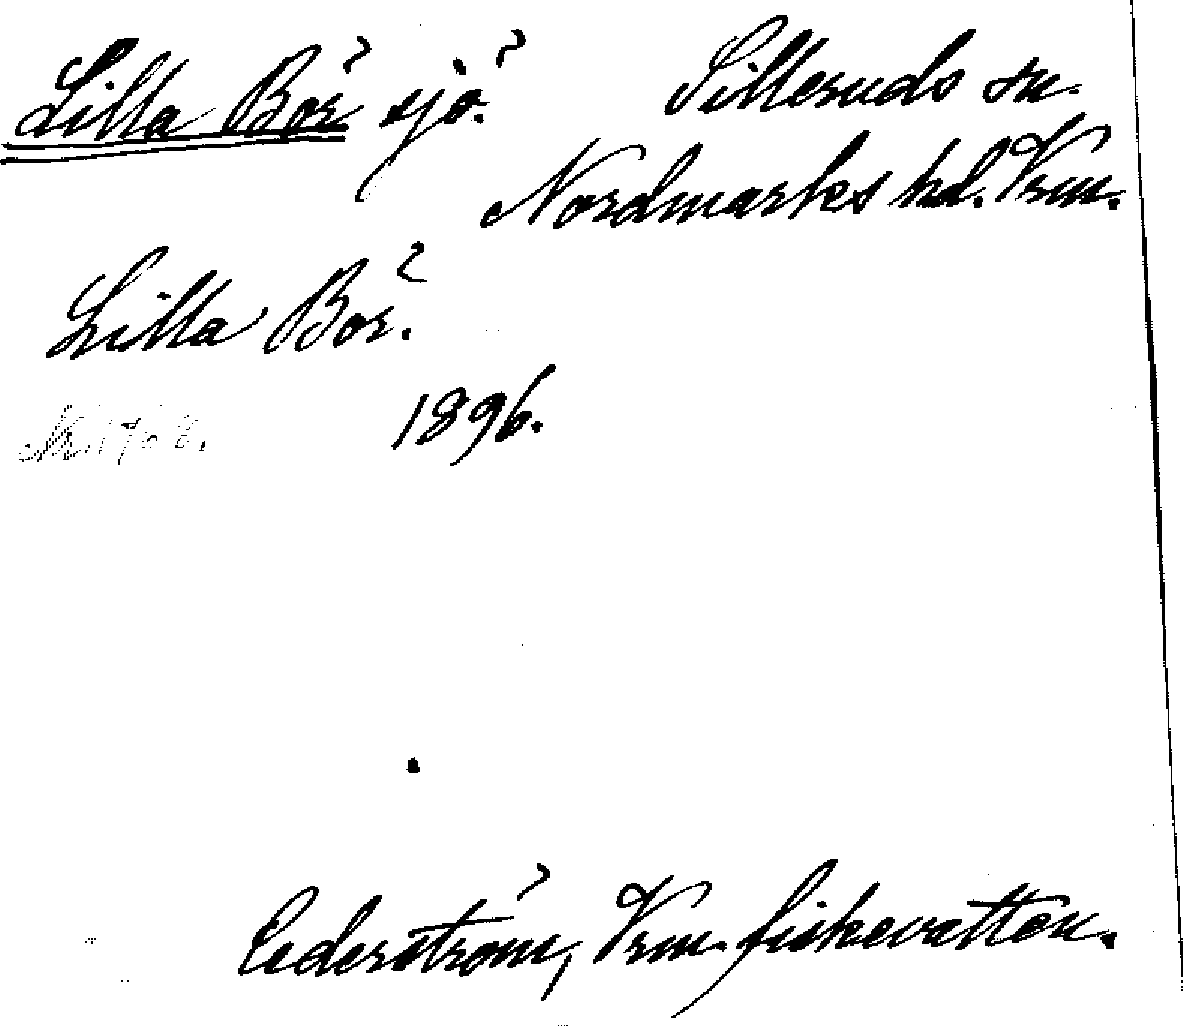 Lilla Bör sjö.
Silleruds sn.
Nordmarks hd. Vrm.
Lilla Bör.
1896.
Nr. 1768.
Cederström, Vrm. fiskevatten.